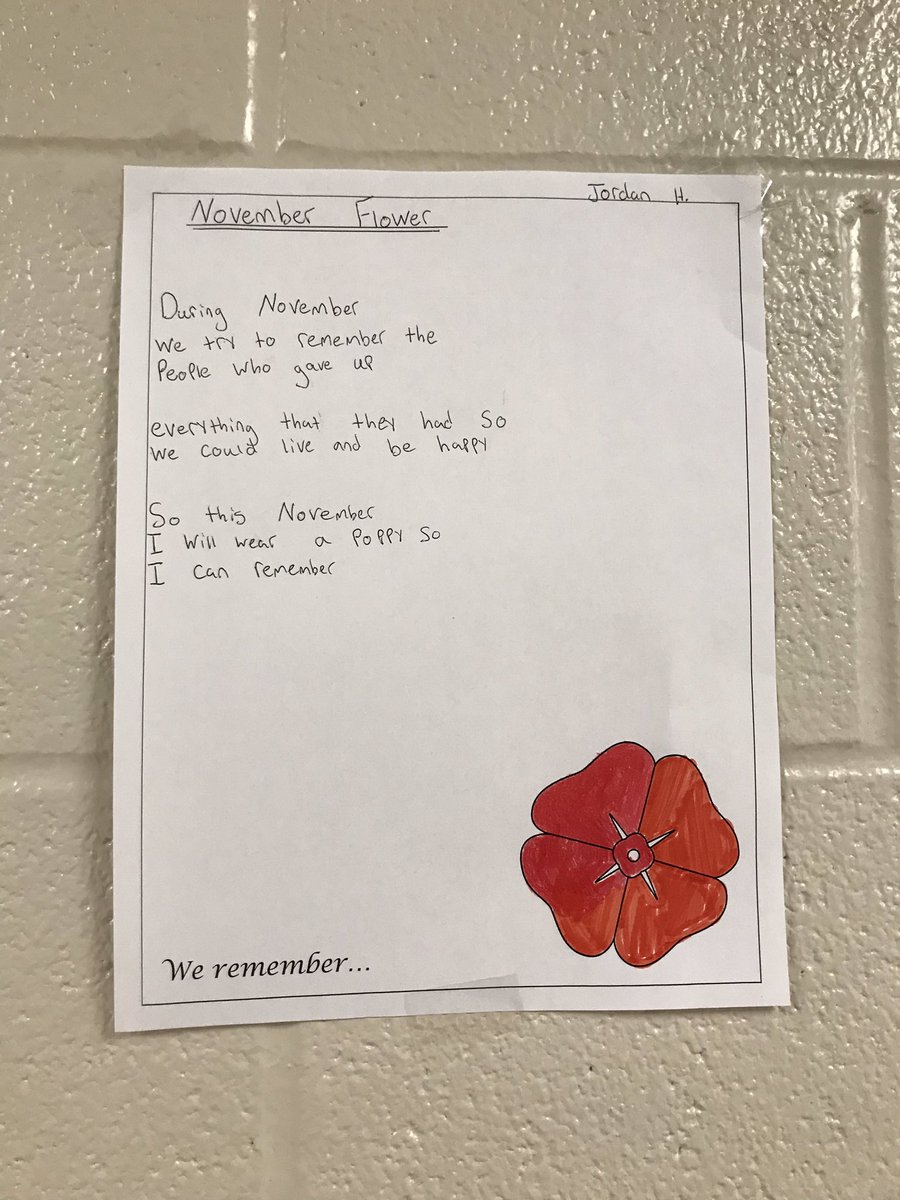 Jordan H.
November Flower
During November
we try to remember the
People who gave up
everything that they had So
we could live and be happy
So this November
I will wear a poppy so
I can remember
We remember...